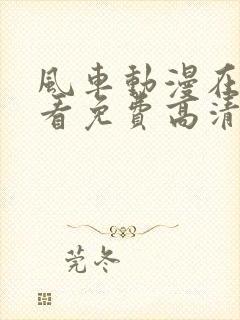 風車動漫在
看免費高清
莞冬